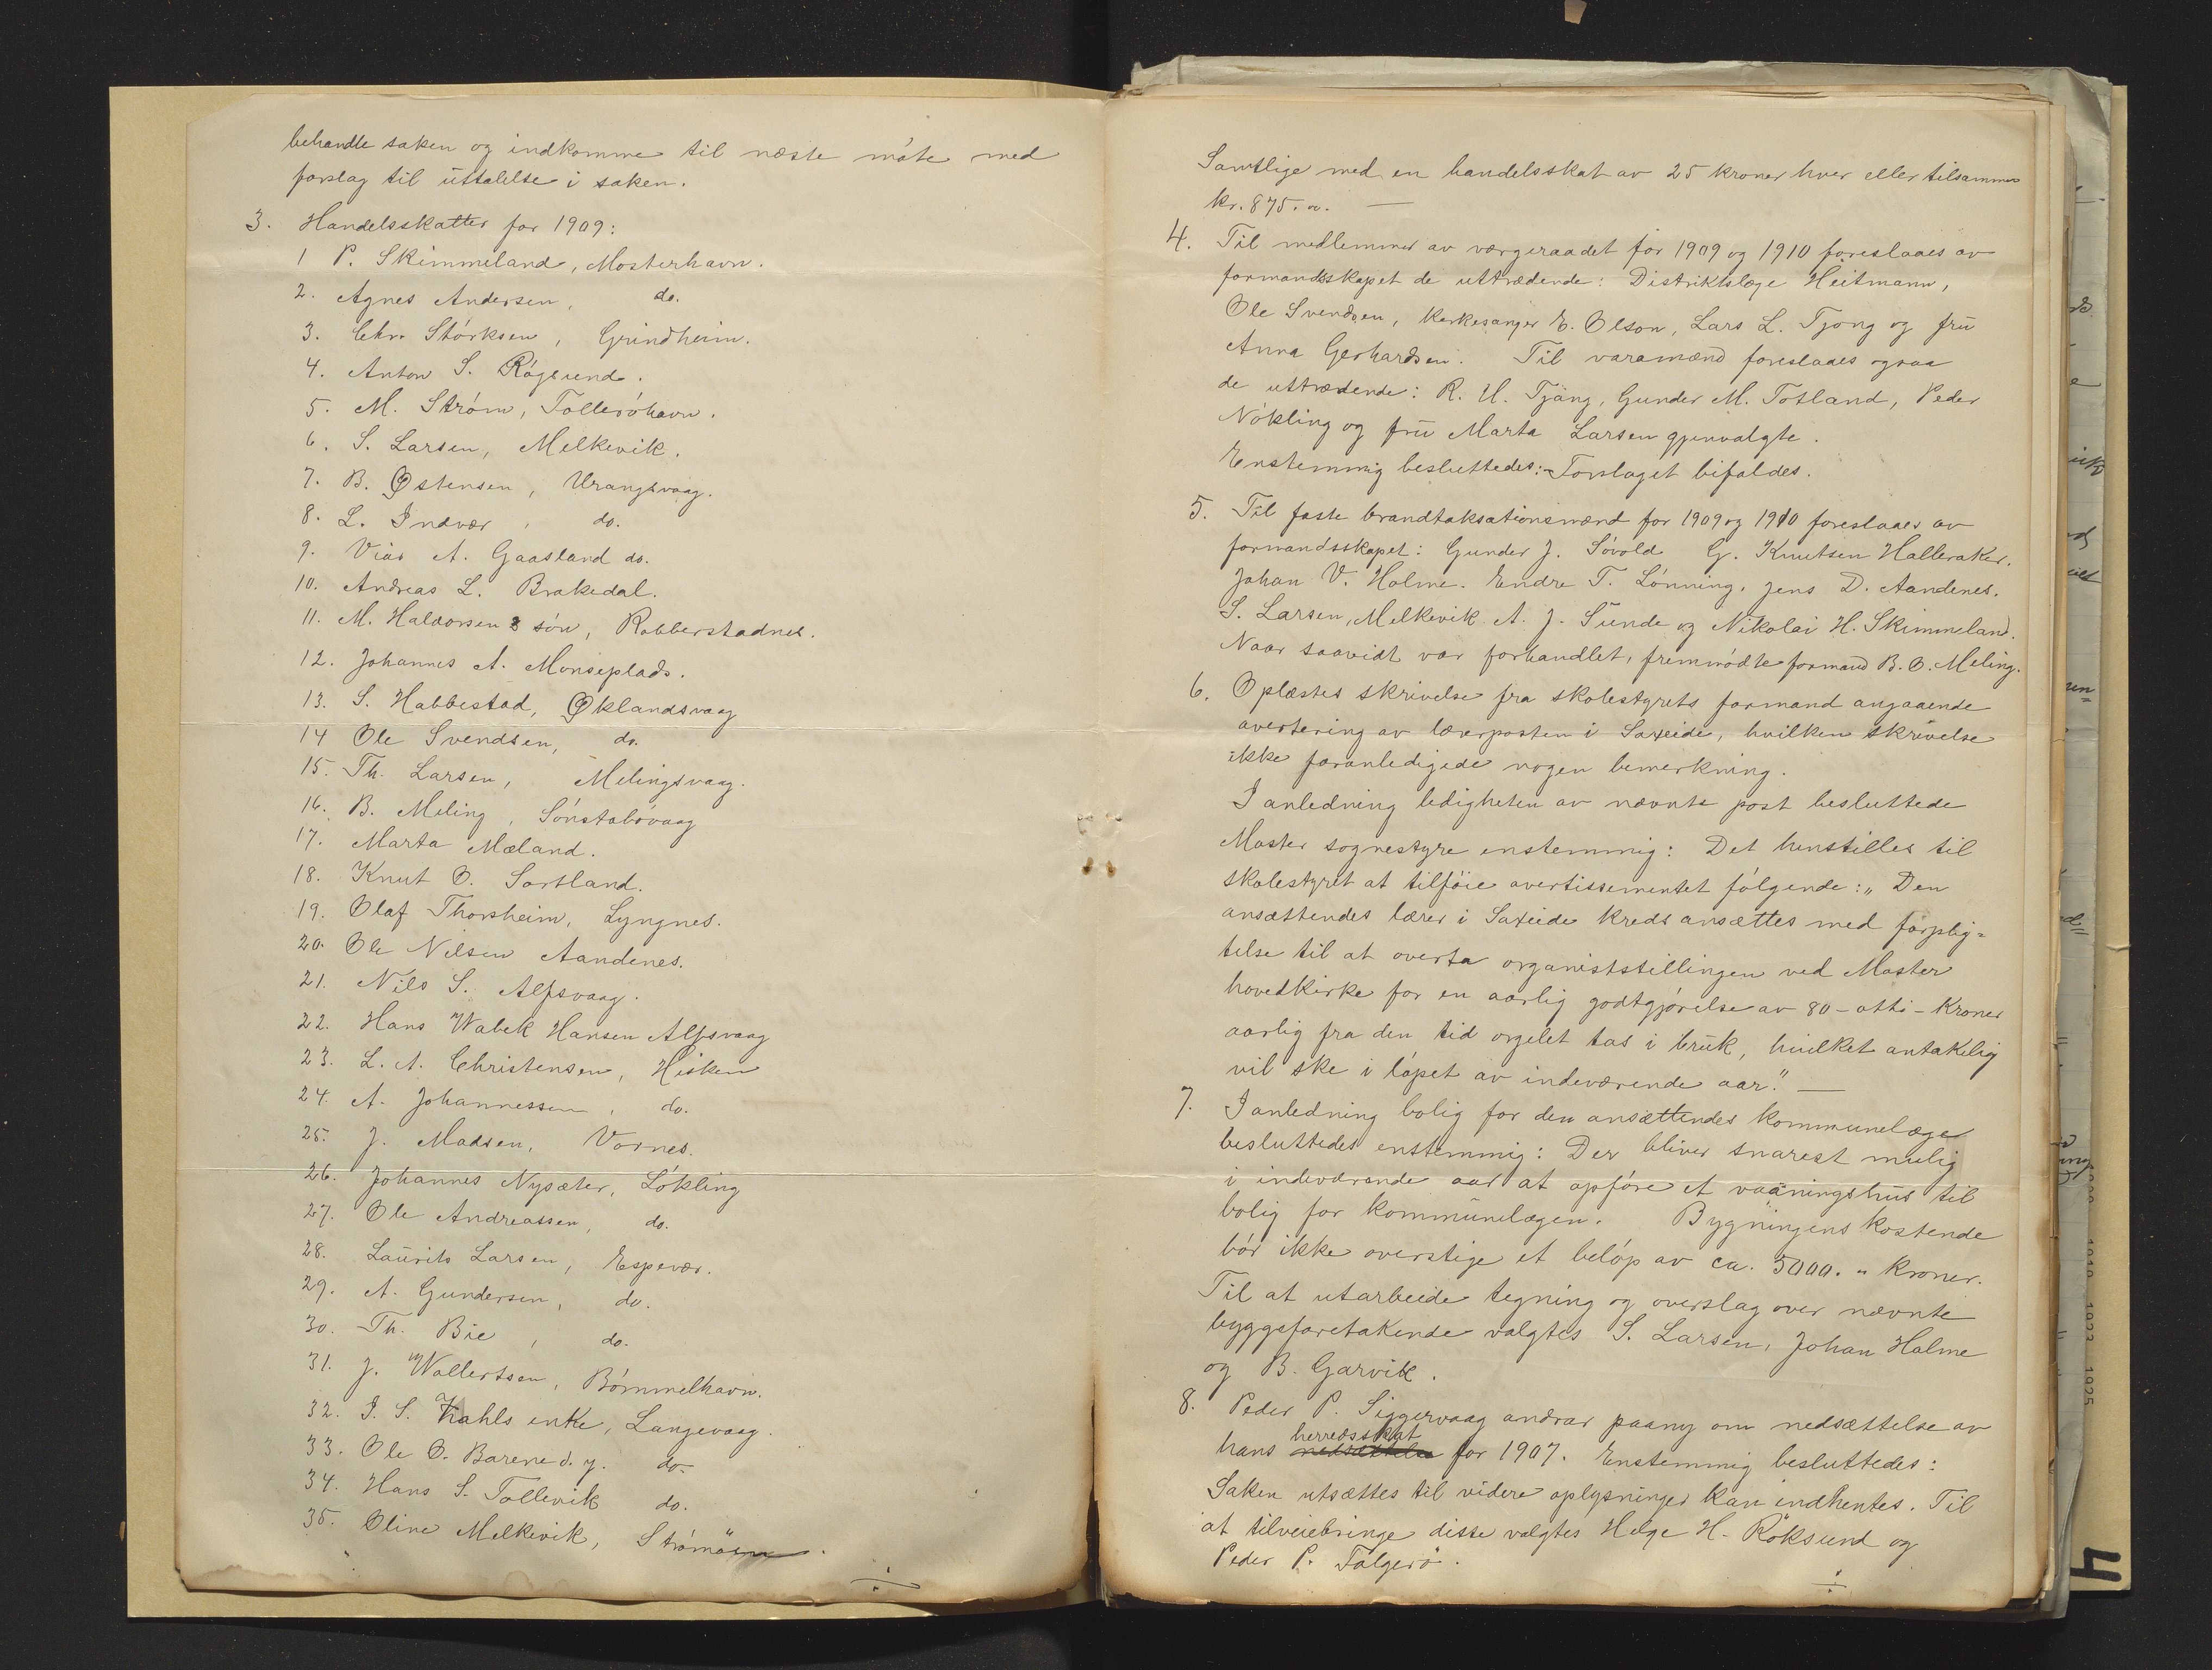 behandle saken og indkomme til næste møte med
forslag til uttalelse i saken.
3. Handelsskatter for 1909:
1 P. Skimmeland, Mosterhavn.
2. Agnes Andersen, do.
3. Chr. Størksen, Grindheim.
4. Anton S. Røgsund.
5. M. Strøm, Tollerøhavn.
6. S. Larsen, Melkevik.
7. B. Østensen, Urangsvaag.
8. L. Indvær, do.
9. A. Gaasland do.
10. Andreas L. Brakedal.
11. M. Haldorsen & søn, Robberstadnes.
12. Johannes A. Monseplads.
13. S. Habbestad, Øklandsvaag
14 Ole Svendsen, do.
15. Th. Larsen, Melingsvaag.
16. B. Meling, Sønstabøvaag
17. Marta Mæland.
18. Knut O. Sortland.
19. Olaf Thorsheim, Lyngnes.
20. Ole Nilsen Aandenes.
21. Nils S. Alfsvaag.
22. Hans Wabek Hansen Alfsvaag
23. L. A. Christensen, Hisken
24. A. Johannessen, do.
25. J. Madsen, Vornes.
26. Johannes Nysæter, Løkling
27. Ole Andreassen, do.
28. Laurits Larsen, Espevær.
29. A. Gundersen, do.
30. Th. Bie, do.
31. J. Wallertsen, Bømmelhavn.
32. I. S. Kahls enke, Langevaag.
33. Ole O. Barene d. y. do.
34. Hans S. Tollevik do.
35. Oline Melkevik, Strømøen.
Samtlige med en handelsskat av 25 kroner hver eller tilsammen
kr. 875.00. —
4. Til medlemmer av værgeraadet for 1909 og 1910 foreslaaes av
formandsskapet de uttrædende: Distriktslæge Heitmann,
Ole Svendsen, kirkesanger E. Olson, Lars L. Tjong og fru
Anna Gerhardsen. Til varamænd foreslaaes ogsaa
de uttrædende: R. H. Tjäng, Gunder M. Totland, Peder
Nøkling og fru Marta Larsen gjenvalgte.
Enstemmig besluttedes: - Forslaget bifaldes.
5. Til faste brandtaksationsmænd for 1909 og 1910 foreslaaes av
formandsskapet: Gunder J. Søvold G. Knutsen Halleraker.
Johan V. Holme. Endre T. Lønning. Jens D. Aandenes.
S. Larsen, Melkevik A. J. Sunde og Nikolai H. Skimmeland.
Naar saavidt var forhandlet, fremmødte formand B. O. Meling.
6. Oplæstes skrivelse fra skolestyrets formand angaaende
avertering av lærerposten i Saxeide, hvilken skrivelse
ikke foranledigede nogen bemerkning.
I anledning ledigheten av nævnte post besluttede
Moster sognestyre enstemmig: Det henstilles til
skolestyret at tilføie avertissementet følgende: „Den
ansættendes lærer i Saxeide kreds ansættes med forplig=
telse til at overta organiststillingen ved Moster
hovedkirke for en aarlig godtgjørelse av 80 - otti - kroner
aarlig fra den tid orgelet tas i bruk, hvilket antakelig
vil ske i løpet av indeværende aar." —
7. I anledning bolig for den ansættendes kommunelæge
besluttedes enstemmig: Der bliver snarest mulig
i indeværende aar at opføre et vaaningshus til
bolig for kommunelægen. Bygningens kostende
bør ikke overstige et beløp av ca. 5000. " kroner.
Til at utarbeide tegning og overslag over nævnte
byggeforetakende valgtes S. Larsen, Johan Holme
og B. Garvik.
8. Peder P. Siggervaag andrar paany om nedsættelse av
herredsskat
hans nedsættelse for 1907. Enstemmig besluttedes:
Saken utsættes til videre oplysninger kan indhentes. Til
at tilveiebringe disse valgtes Helge H. Röksund og
Peder P. Folgerö.